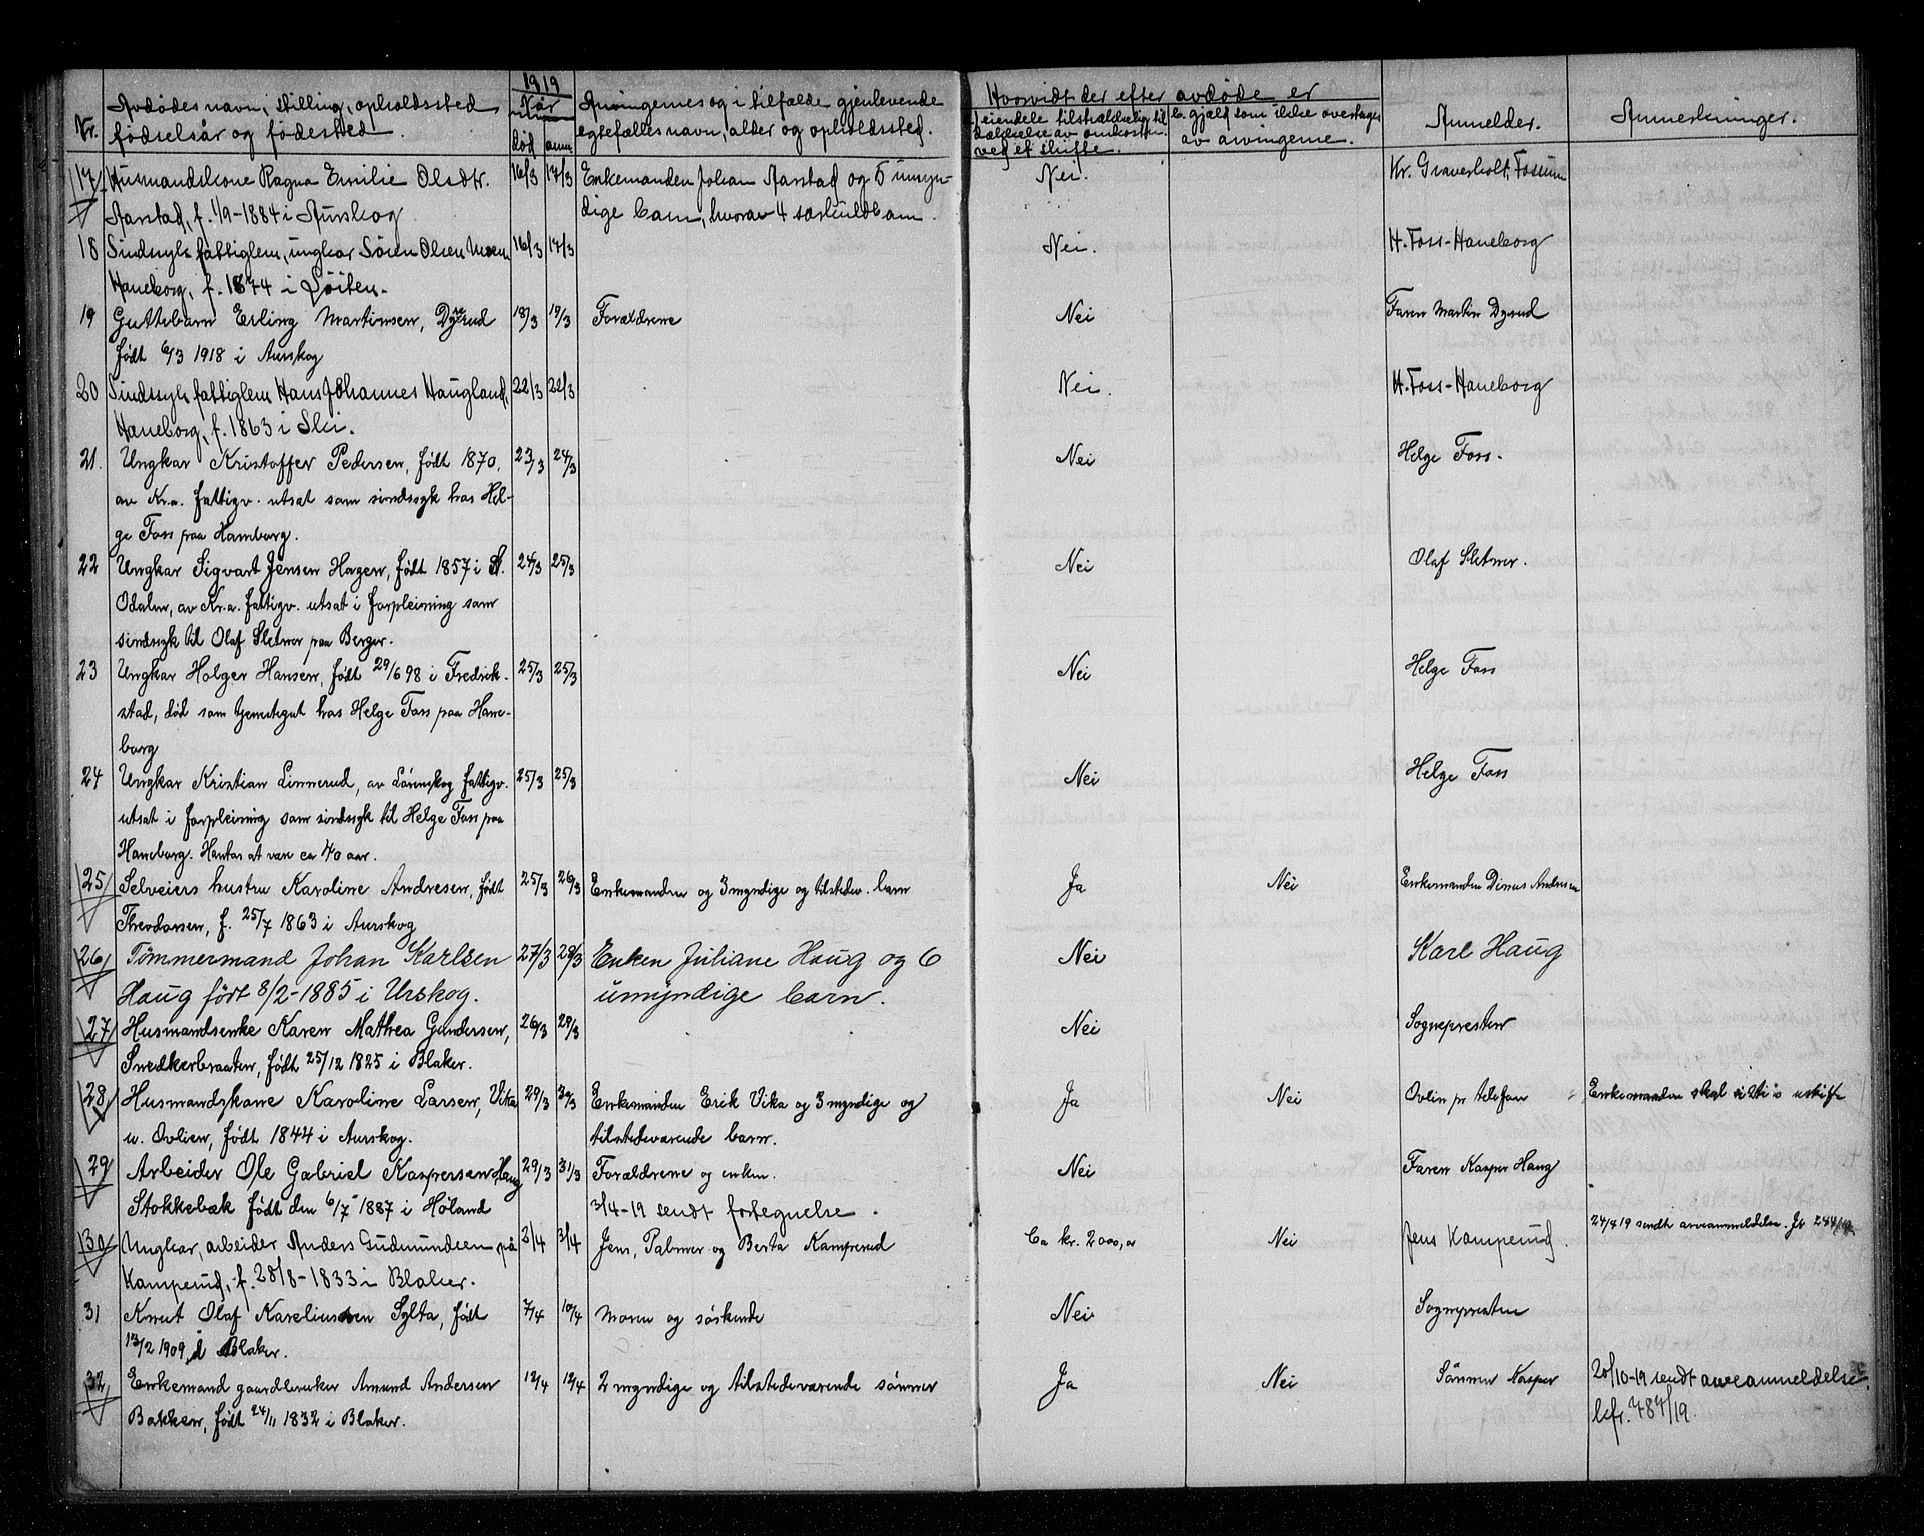 1919
Nr.
Avdødes navn, stilling, opholdssted,
fødselsår og fødested.
Når
død
anm.
Arvingernes og i tilfælde gjenlevende
egtefælles navn, alder og opholdssted.
Hvorvidt der efter avdøde er
eiendele tilstrækkelig til
dækkelse av omkostn.
ved et skifte.
b. gjæld som ikke overtages
av arvingerne.
Anmelder.
Anmerkninger.
17 Husmandskone Ragna Emilie Olsdtr. 16/3 17/3 Enkemanden Johan Aarstad og 5 umyn- Nei. Kr. Graverholt, Fossum
Aarstad, f. 1/9-1884 i Aurskog dige barn, hvorav 4 særkuldbarn.
18 Sindsyk fattiglem, ungkar Søren Olsen Moen 16/3 17/3 Nei. H. Foss-Haneborg
Haneborg, f. 1874 i Löiten.
19 Guttebarn Erling Martinsen, Dyrrud 18/3 19/3 Forældrene Nei Faren Martin Dyrud
født 6/3 1918 i Aurskog
20 Sindssyk fattiglem Hans Johannes Haugland, 22/3 22/3 Nei. H. Foss-Haneborg
Haneborg, f. 1863 i Ski.
21. Ungkar Kristoffer Pedersen, født 1870, 23/3 24/3 Nei Helge Foss.
av Kr.a. fattigv. utsat som sindssyk hos Hel-
ge Foss paa Hamborg.
22 Ungkar Sigvart Jensen Hagen, født 1857 i S. 24/3 25/3 Nei Olaf Sletner.
Odalen, av Kr.a. fattigv. utsat i forpleining som
sindssyk til Olaf Sletner paa Berger.
23 Ungkar Holger Hansen, født 29/6 98 i Fredrik- 25/3 25/3 Nei Helge Foss
stad, død som tjenestegut hos Helge Foss paa Hane-
borg
24 Ungkar Kristian Linnerud, av Lørenskog fattigv. 25/3 25/3 Nei Helge Foss
utsat i forpleining som sindssyk til Helge Foss paa
Haneborg. Hantas at være ca 70 aar.
25 Selveiers hustru Karoline Andresen, født 25/3 26/3 Enkemanden og 3 myndige og tilstedev. barn Ja Nei Enkemanden Dinus Andresen
Theodorsen, f. 25/7 1863 i Aurskog
26 Tømmermand Johan Karlsen 27/3 28/3 Enken Juliane Haug og 6 Nei Karl Haug
Haug født 8/2-1885 i Urskog. umyndige barn.
27 Husmandsenke Karen Mathea Gundersen, 26/3 29/3 Nei Sognepresten
Snedkerbraaten, født 25/12 1825 i Blaker.
28 Husmandskone Karoline Larsen, Vika 29/3 30/3 Enkemanden Erik Vika og 3 myndige og Ja Nei Ovlien pr telefon Enkemanden skal sitte i uskifte
u. Ovlien, født 1844 i Aurskog. tilstedeværende barn.
29 Arbeider Ole Gabriel Kaspersen Haug 29/3 31/3 Forældrene og enken. Nei Faren Kasper Haug
Stokkebæk født den 6/7 1887 i Høland 3/4-19 sendt fortegnelse.
30 Ungkar, arbeider Anders Gudmundsen på 2/4 3/4 Jens, Palmer og Berta Kamperud Ca kr. 2000,00 Nei Jens Kamperud. 24/4 19 sendt arveanmeldelse. Jr 244/19
Kamperud, f. 28/8-1833 i Blaker.
31 Knut Olaf Kareliussen Sylta, født 7/4 10/4 Moren og søskende Nei Sognepresten
13/2 1909 i Blaker.
32 Enkemand gaardbruker Amund Andersen 12/4 12/4 2 myndige og tilstedeværende sønner Ja Nei Sønnen Kasper 20/10-19 sendt arveanmeldelse.
Bakken, født 24/11 1832 i Blaker. kfr. 787/19.